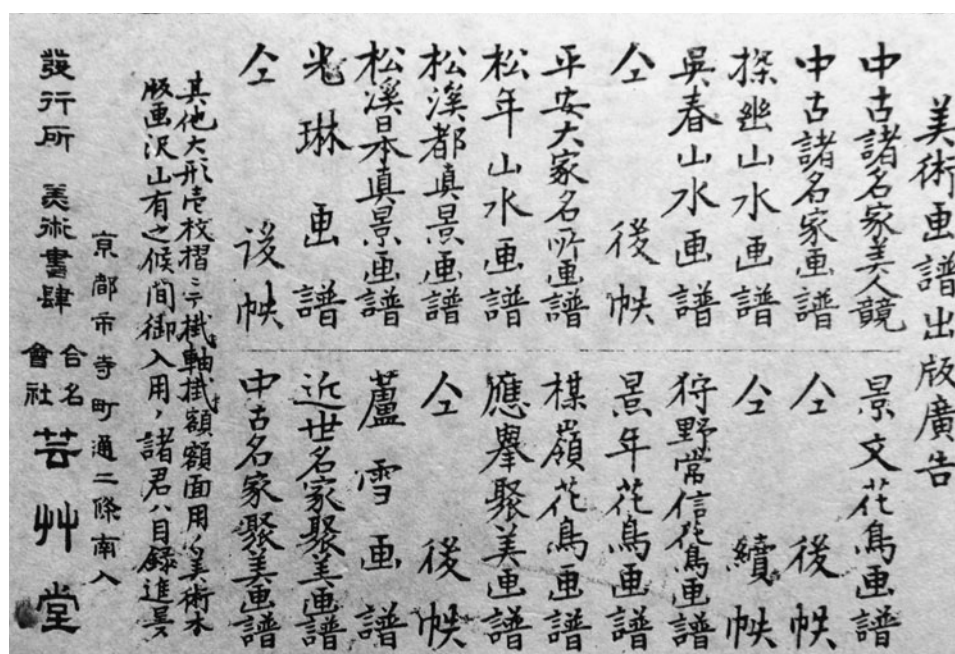 美術画譜出版廣告
中古諸名家美人競
中古諸名家画譜
探幽山水画譜
吳春山水画譜
仝後帙
平安大家名所画譜
松年山水画譜
松溪都真景画譜
松溪日本真景画譜
光琳画譜
仝後帙
景文花鳥画譜
仝後帙
仝續帙
狩野常信花鳥画譜
景年花鳥画譜
楳嶺花鳥画譜
應擧聚美画譜
仝後帙
蘆雪画譜
近世名家聚美画譜
中古名家聚美画譜
其他大形壱枚摺ニテ掛軸掛額額面用ノ美術木
版画沢山有之候間御入用ノ諸君ハ目録進呈ス
京都市寺町通二條南入
發行所 美術書肆 合名會社 芸艸堂